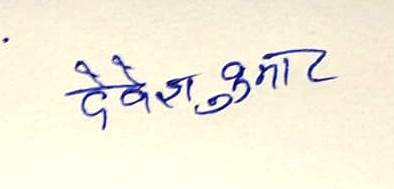 देवेश कुमार